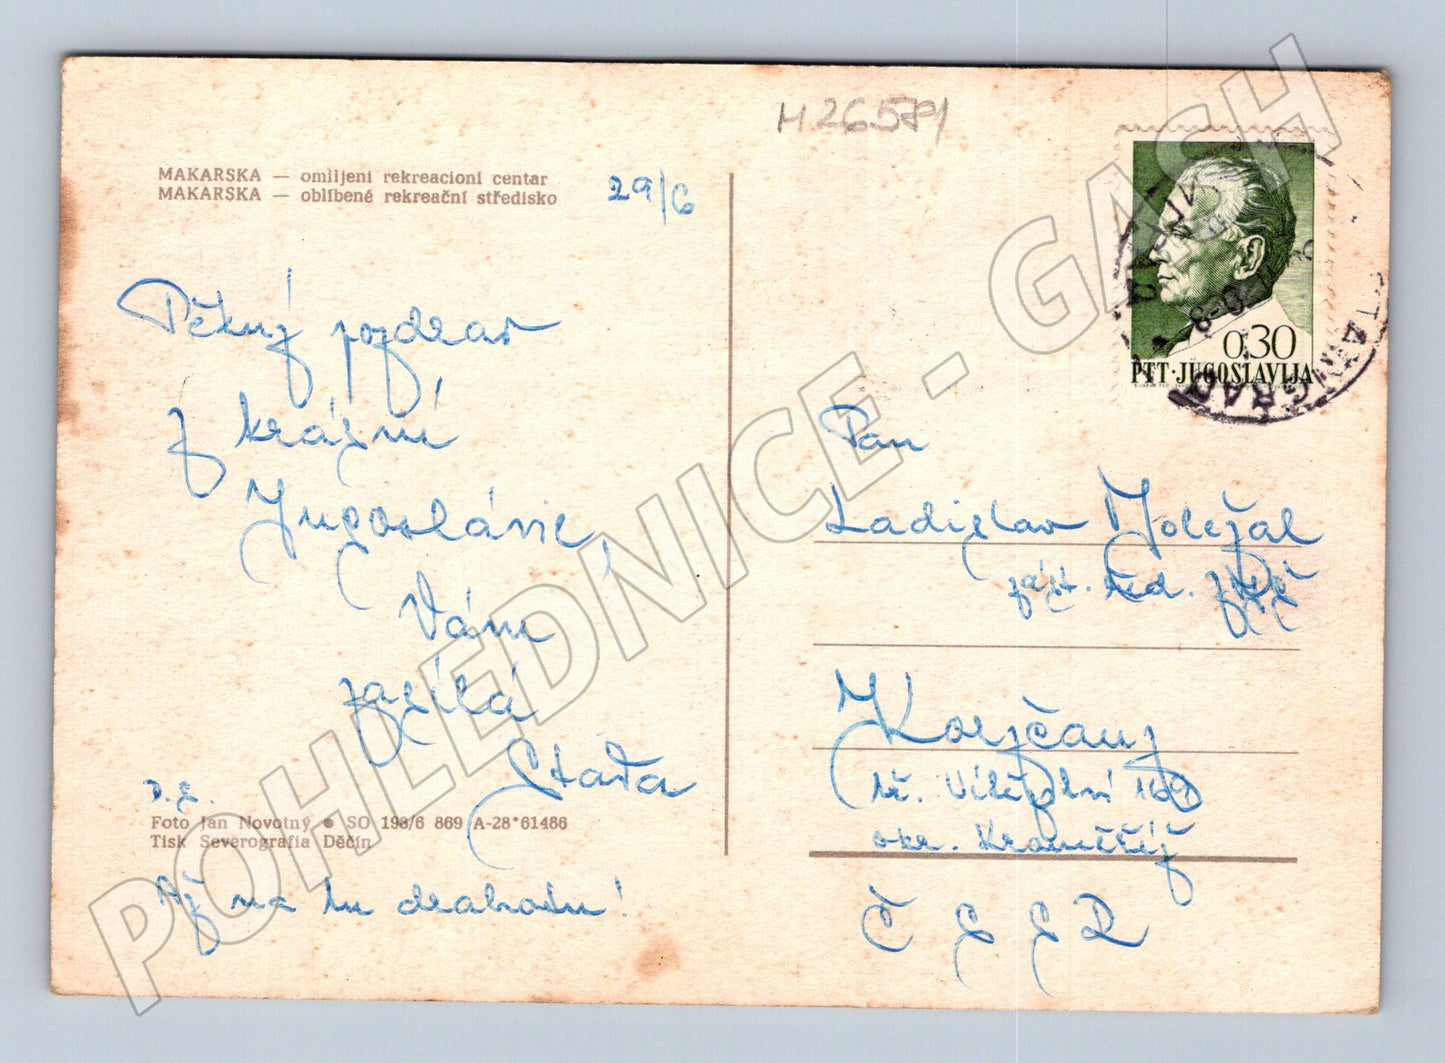 H 26579
MAKARSKA — omiljeni rekreacioni centar
MAKARSKA — oblíbené rekreační středisko
29/6
Pěkný pozdrav
z krásné
Jugoslávie,
Vám
zasílá
Staďa
D. S.
Foto Jan Novotný ● SO 198/6 869 A-28*61486
Tisk Severografia Děčín
Až na tu drahodu!
0,30
PTT·JUGOSLAVIJA
Pan
Ladislav Doležal
zást. řed.
Koryčany
okr. Kroměříž
Č S S R
POHLEDNICE - GASH